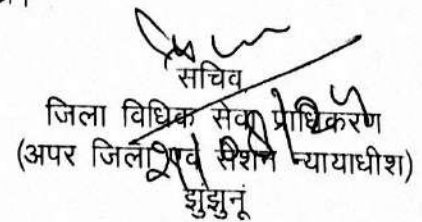 सचिव
जिला विधिक सेवा प्राधिकरण
(अपर जिला एवं सेशन न्यायाधीश)
झुंझुनूं